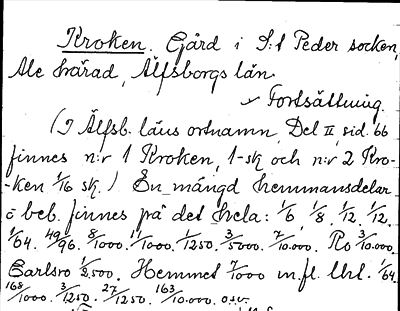 Kroken. Gård i S:t Peder socken,
Ale härad, Älfsborgs län.
Fortsättning.
(I Älfsb. läns ortnamn, Del II, sid. 66
finnes n:r 1 Kroken, 1-sk och n:r 2 Kro-
-ken 1/16 sk.) En mängd hemmansdelar
o beb. finnes på det hela: 1/6, 1/8, 1/12, 1/12,
1/64. 49/96. 8/1000. 1/1000. 1/1250. 3/5000. 7/10.000. Ro 3/10.000.
Carlsro 1/2,500. Hemmet 7/1000 m.fl. Utsl. 1/64.
168/1000. 3/1250. 27/1250. 163/10.000. o.s.v.